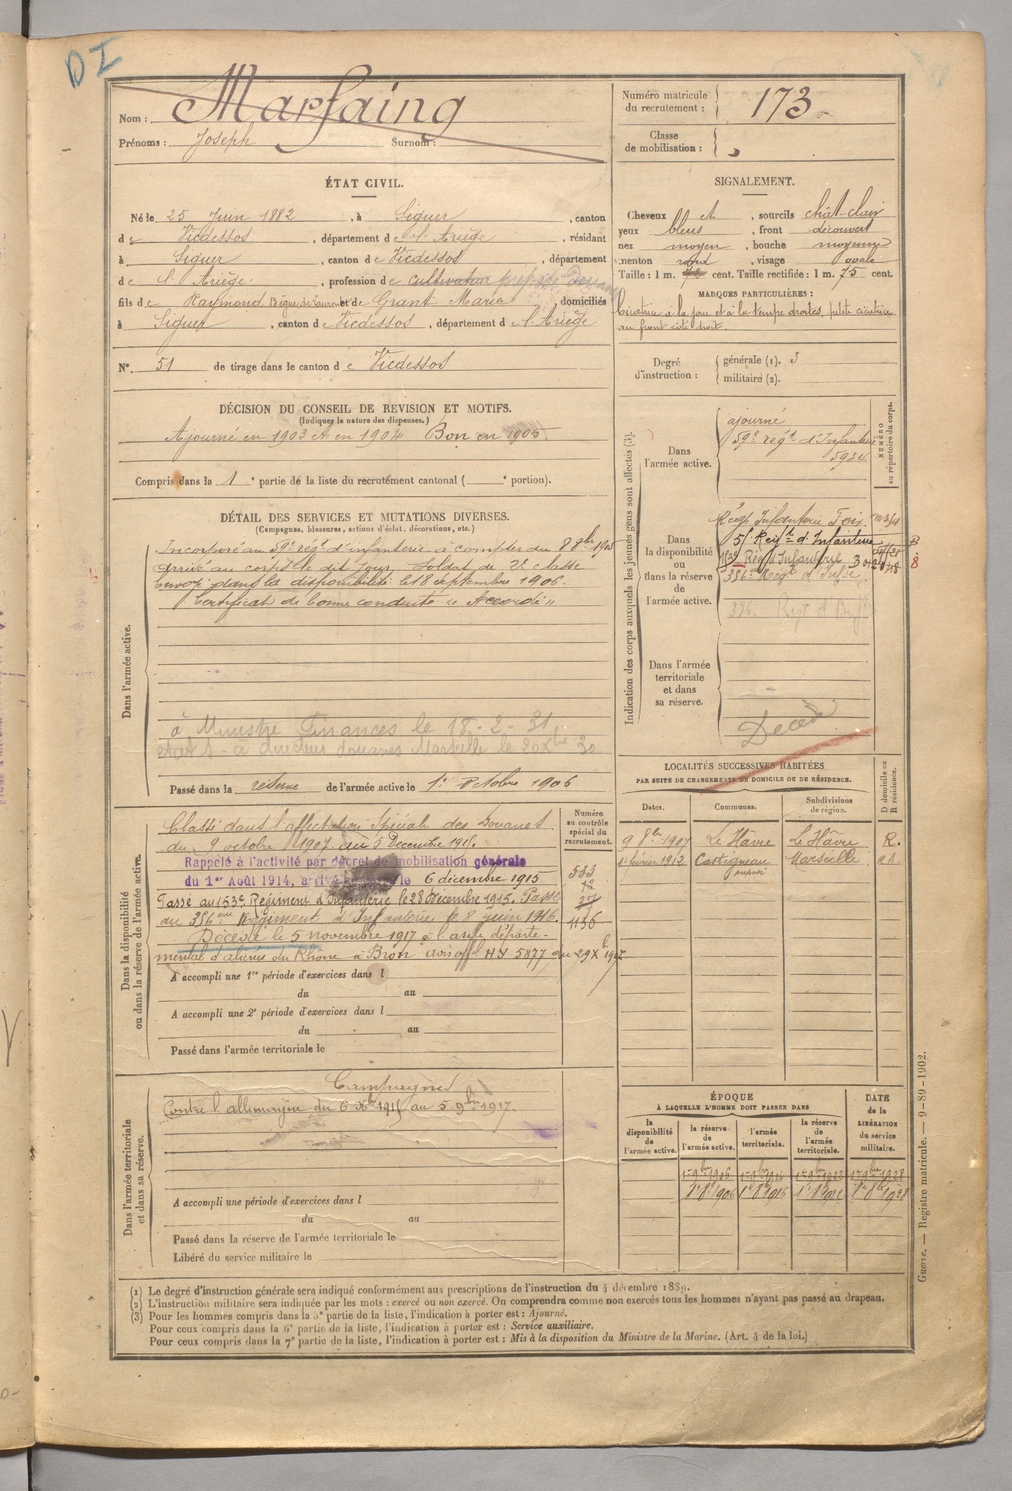 DI
Nom : Marfaing
Prénoms : Joseph Surnom :
Numéro matricule du recrutement : 173
Classe de mobilisation :
ÉTAT CIVIL.
Né le 25 Juin 1882, à Siguer, canton
de Vicdessos, département de l'Ariège, résidant
à Siguer, canton de Vicdessos, département
de l'Ariège, profession de cultivateur
fils de Raymond et de Grant Marie domiciliés
à Siguer, canton de Vicdessos, département de l'Ariège
N° 51 de tirage dans le canton de Vicdessos
SIGNALEMENT.
Cheveux et, sourcils chât-clair
yeux bleus, front découvert
nez moyen, bouche moyenne
menton rond, visage ovale
Taille : 1 m. cent. Taille rectifiée : 1 m. 75 cent.
MARQUES PARTICULIÈRES :
Cicatrice à la joue et à la tempe droites, petite cicatrice
au front côté droit.
Degré d'instruction :
générale (1). 3
militaire (2).
DÉCISION DU CONSEIL DE REVISION ET MOTIFS.
(Indiquer la nature des dispenses.)
Ajourné en 1903 et en 1904 Bon en 1905
Compris dans la 1e partie de la liste du recrutement cantonal ( e portion).
DÉTAIL DES SERVICES ET MUTATIONS DIVERSES.
(Campagnes, blessures, actions d'éclat, décorations, etc.)
Dans l'armée active.
Incorporé au 59e régt d'infanterie à compter du 8 8bre 1905
Arrivé au corps le dit jour, Soldat de 2e classe
Envoyé dans la disponibilité le 18 septembre 1906.
Certificat de bonne conduite "Accordé"
à Ministre Finances le 18-2-31
à directeur douanes Marseille le 30
Passé dans la réserve de l'armée active le 1er Octobre 1906
Indication des corps auxquels les jeunes gens sont affectés (3).
NUMÉRO au répertoire du corps.
Dans l'armée active.
ajourné
59e régt d'Infanterie
5934
Dans la disponibilité ou dans la réserve de l'armée active.
Régt Infanterie Foix.
Regt d'Infanterie
Régt d'Infanterie
356e Regt d'Infie
Dans l'armée territoriale et dans sa réserve.
Décédé
LOCALITÉS SUCCESSIVES HABITÉES
PAR SUITE DE CHANGEMENTS DE DOMICILE OU DE RÉSIDENCE.
Dates. Communes. Subdivisions de région. D domicile ou R résidence.
9 8bre 1907 Le Hâvre Le Hâvre R.
1er février 1912 Castigneau Marseille
Dans la disponibilité ou dans la réserve de l'armée active.
Numéro au contrôle spécial du recrutement.
Classé dans l'affectation Spéciale des Douanes
du 9 octobre 1907 au 5 Décembre 1915.
Rappelé à l'activité par décret de mobilisation générale
du 1er Août 1914, arrivé le 6 décembre 1915
Passé au 153e Régiment d'Infanterie le 28 Décembre 1915. Passé
au 356eme Régiment d'Infanterie le 8 juin 1916.
Décédé le 5 novembre 1917 à l'asile départe-
mental d'aliénés du Rhône à Bron avis off HY 5877 du 29 X 1917
533
1156
A accompli une 1re période d'exercices dans l
du au
A accompli une 2e période d'exercices dans l
du au
Passé dans l'armée territoriale le
Dans l'armée territoriale et dans sa réserve.
Campagnes
Contre l'allemagne du 6 Xbre 1915 au 5 9bre 1917.
A accompli une période d'exercices dans l
du au
Passé dans la réserve de l'armée territoriale le
Libéré du service militaire le
ÉPOQUE
À LAQUELLE L'HOMME DOIT PASSER DANS
DATE de la LIBÉRATION du service militaire.
la disponibilité de l'armée active. la réserve de l'armée active. l'armée territoriale. la réserve de l'armée territoriale.
Guerre. — Registre matricule. — 9-89-1902.
(1) Le degré d'instruction générale sera indiqué conformément aux prescriptions de l'instruction du 4 décembre 1889.
(2) L'instruction militaire sera indiquée par les mots : exercé ou non exercé. On comprendra comme non exercés tous les hommes n'ayant pas passé au drapeau.
(3) Pour les hommes compris dans la 5e partie de la liste, l'indication à porter est : Ajourné.
Pour ceux compris dans la 6e partie de la liste, l'indication à porter est : Service auxiliaire.
Pour ceux compris dans la 7e partie de la liste, l'indication à porter est : Mis à la disposition du Ministre de la Marine. (Art. 4 de la loi.)